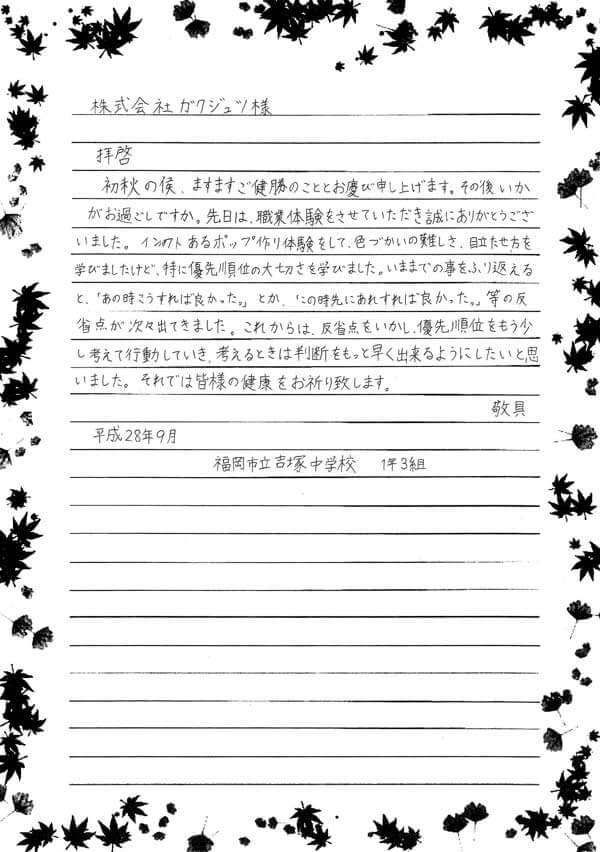 株式会社ガクジュツ様
拝啓
初秋の侯、ますますご健勝のこととお慶び申し上げます。その後いか
がお過ごしですか。先日は、職業体験をさせていただき誠にありがとうござ
いました。インパクトあるポップ作り体験をして、色づかいの難しさ、目立たせ方を
学びましたけど、特に優先順位の大切さを学びました。いままでの事をふり返える
と、「あの時こうすれば良かった。」とか、「この時先にあれすれば良かった。」等の反
省点が次々出てきました。これからは、反省点をいかし、優先順位をもう少
し考えて行動していき、考えるときは判断をもっと早く出来るようにしたいと思
いました。それでは皆様の健康をお祈り致します。
敬具
平成28年9月
福岡市立吉塚中学校 1年3組